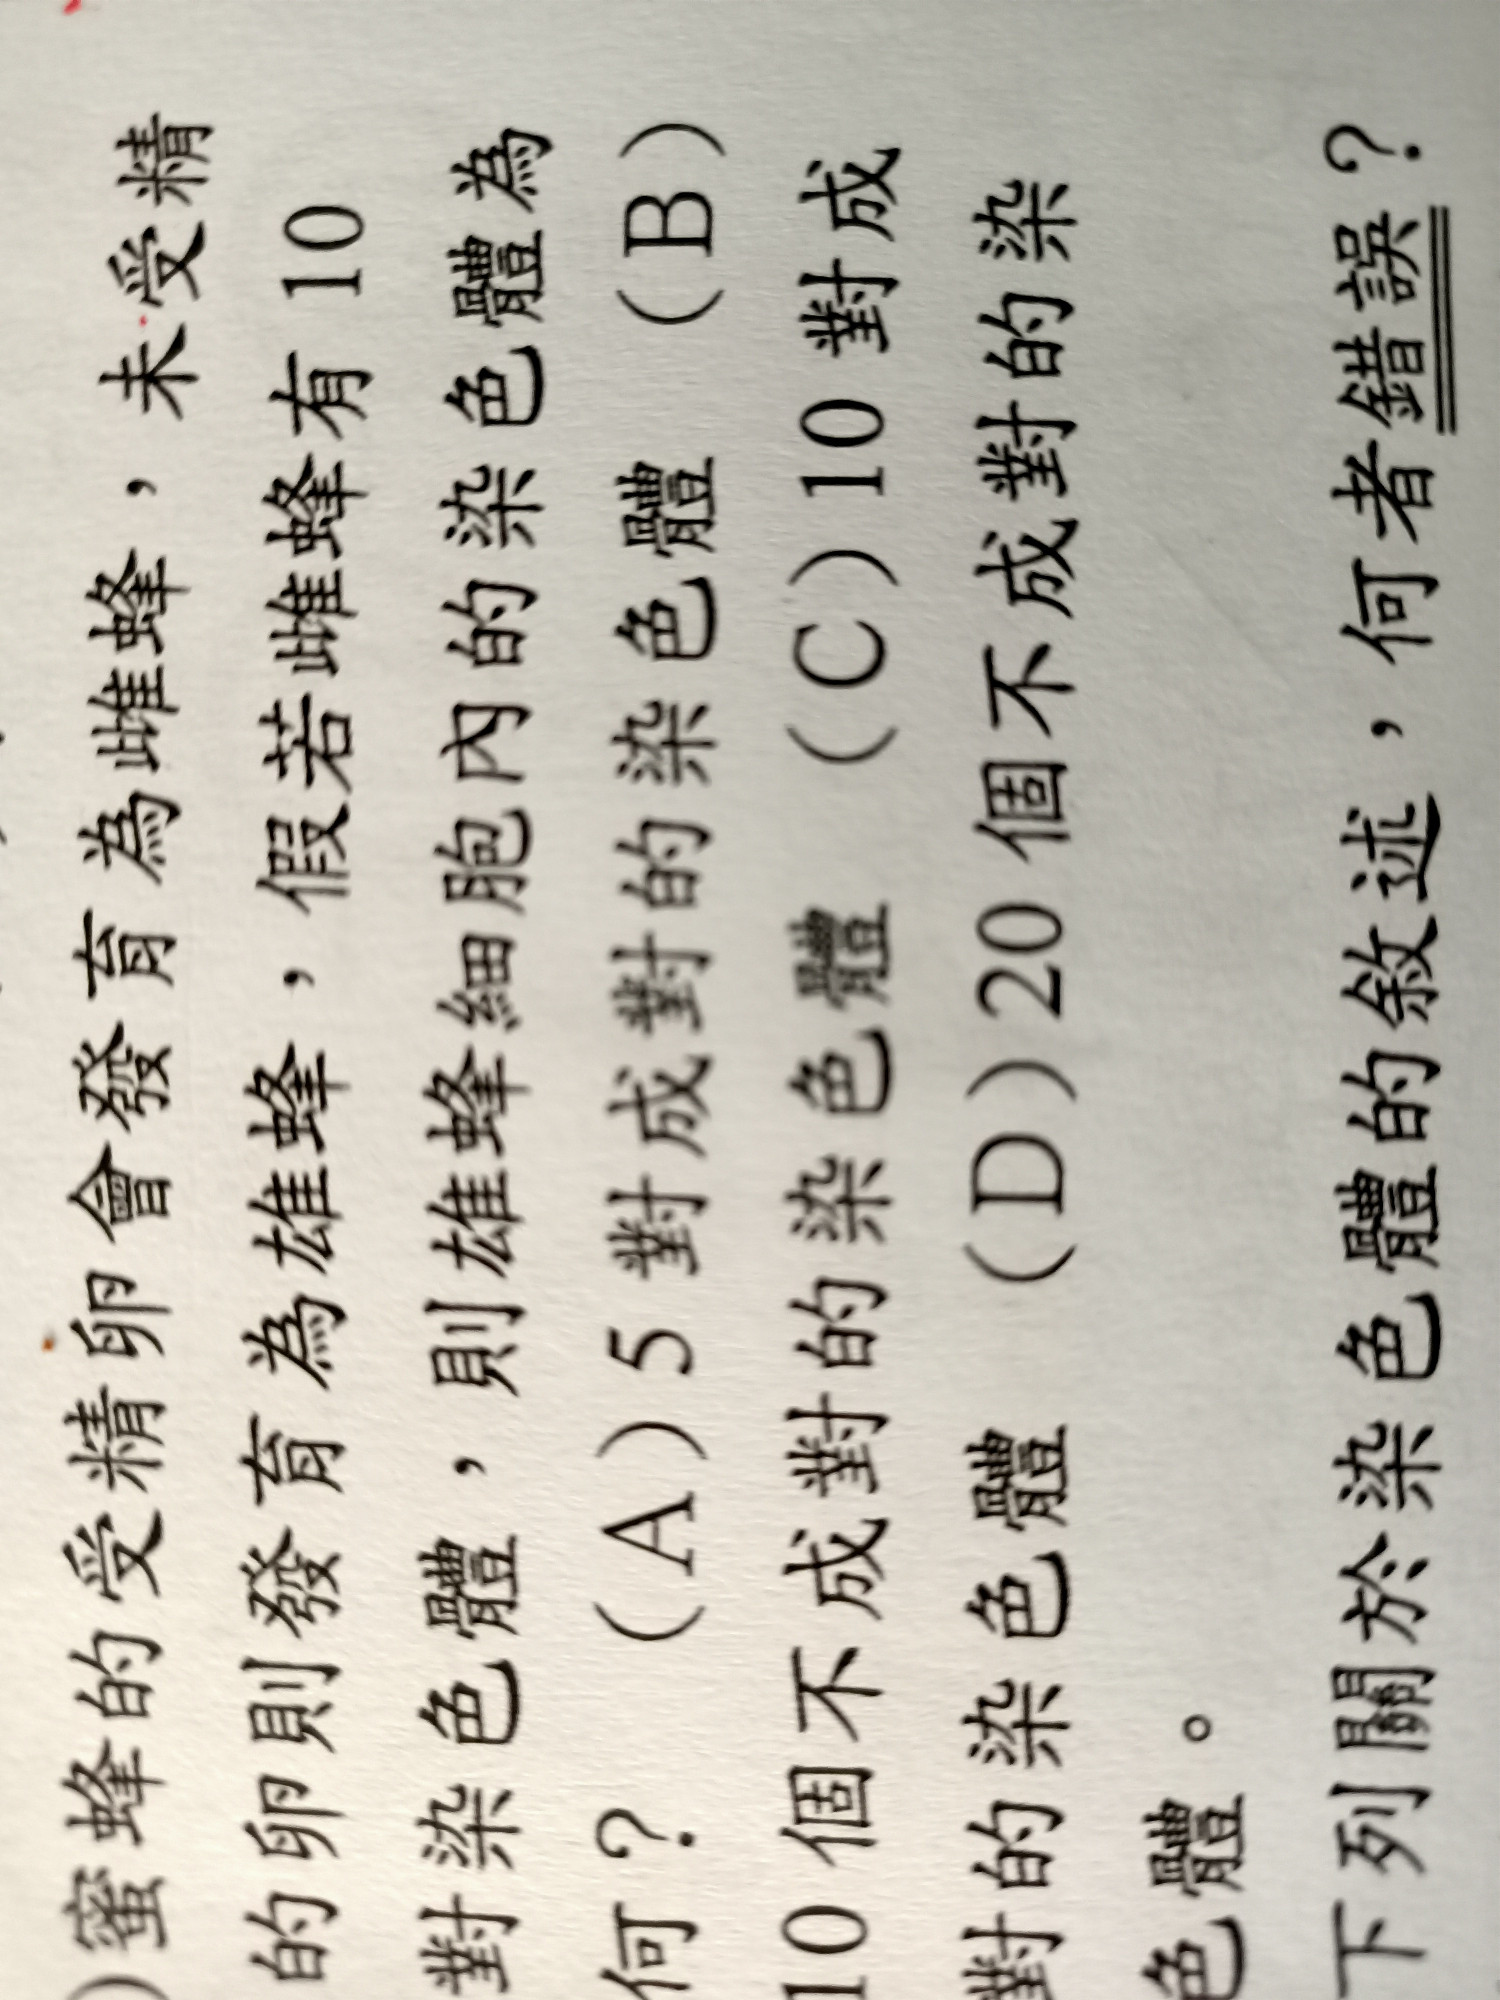 )蜜蜂的受精卵會發育為雌蜂，未受精
的卵則發育為雄蜂，假若雌蜂有 10
對染色體，則雄蜂細胞內的染色體為
何？　(A) 5 對成對的染色體　(B)
10 個不成對的染色體　(C) 10 對成
對的染色體　(D) 20 個不成對的染
色體。
下列關於染色體的敘述，何者錯誤？